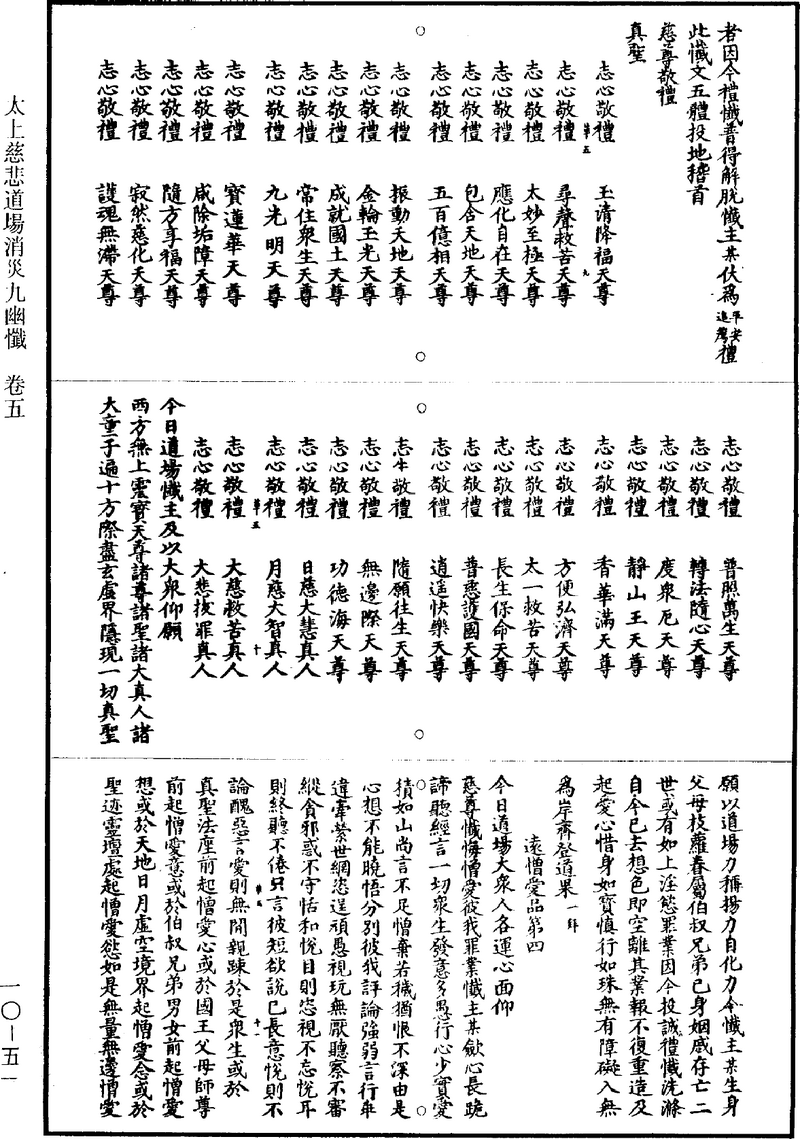 者因今禮懺普得解脫懺主某伏爲平安進薦禮
此懺文五體投地稽首
慈尊敬禮
真聖
志心敬禮　玉清降福天尊
志心敬禮　尋聲救苦天尊
志心敬禮　太妙至極天尊
志心敬禮　應化自在天尊
志心敬禮　包含天地天尊
志心敬禮　五百億相天尊
志心敬禮　振動天地天尊
志心敬禮　金輪玉光天尊
志心敬禮　成就國土天尊
志心敬禮　常住衆生天尊
志心敬禮　九光明天尊
志心敬禮　寶蓮華天尊
志心敬禮　咸除垢障天尊
志心敬禮　隨方享福天尊
志心敬禮　寂然慈化天尊
志心敬禮　護魂無滯天尊
志心敬禮　普照萬生天尊
志心敬禮　轉法隨心天尊
志心敬禮　度衆厄天尊
志心敬禮　靜山王天尊
志心敬禮　香華滿天尊
志心敬禮　方便弘濟天尊
志心敬禮　太一救苦天尊
志心敬禮　長生保命天尊
志心敬禮　普慈護國天尊
志心敬禮　逍遥快樂天尊
志心敬禮　隨願往生天尊
志心敬禮　無邊際天尊
志心敬禮　功德海天尊
志心敬禮　日慈大慧真人
志心敬禮　月慈大智真人
志心敬禮　大慈救苦真人
志心敬禮　大悲拔罪真人
今日道場懺主及以大衆仰願
西方無上靈寶天尊諸尊諸聖諸大真人諸
大童子遍十方際盡玄虛界隱現一切真聖
願以道場力稱揚力自化力令懺主某生身
父母枝蘿眷屬伯叔兄弟已身姻戚存亡二
世或有如上淫慾罪業因今投誠禮懺洗滌
自今已去想色即空離其業報不復重造及
起愛心惜身如寶慎行如珠無有障礙入無
爲岸齊登道果一拜
遠憎愛品第四
今日道場大衆人各運心西仰
慈尊懺悔憎愛彼我罪業懺主某歛心長跪
諦聽經言一切衆生發意多愚行心少實愛
積如山尚言不足憎棄若穢猶恨不深由是
心想不能曉悟分別彼我評論強弱言行乖
違牽縈世網恣逞頑愚視玩無厭聽察不審
縱貪邪惑不守恬和悅目則恣視不忘悅耳
則終聽不倦只言彼短欲說己長意悅則不
論醜惡言愛則無間親踈於是衆生或於
真聖法座前起憎愛心或於國王父母師尊
前起憎愛意或於伯叔兄弟男女前起憎愛
想或於天地日月虛空境界起憎愛念或於
聖迹靈壇處起憎愛慾如是無量無邊憎愛
華五　九
華五　十
華五　十一
太上慈悲道場消災九幽懺　卷五
一〇－五一